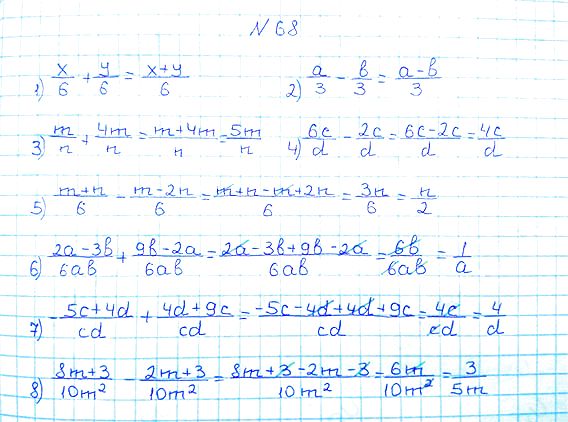 N 68
1) x/6 + y/6 = x+y/6 2) a/3 - b/3 = a-b/3
3) m/n + 4m/n = m+4m/n = 5m/n 4) 6c/d - 2c/d = 6c-2c/d = 4c/d
5) m+n/6 - m-2n/6 = m+n-m+2n/6 = 3n/6 = n/2
6) 2a-3b/6ab + 9b-2a/6ab = 2a-3b+9b-2a/6ab = 6b/6ab = 1/a
7) -5c+4d/cd + 4d+9c/cd = -5c-4d+4d+9c/cd = 4c/cd = 4/d
8) 8m+3/10m² - 2m+3/10m² = 8m+3-2m-3/10m² = 6m/10m² = 3/5m